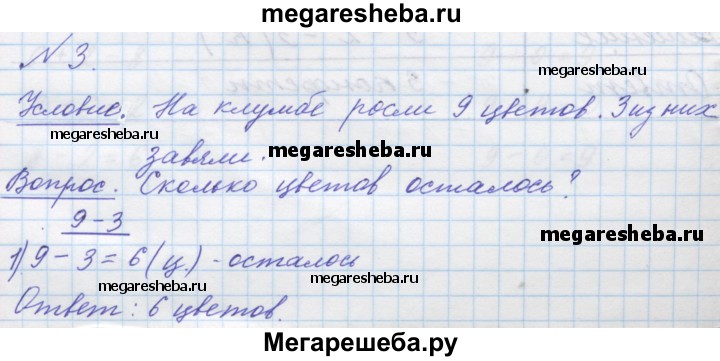 megaresheba.ru
N 3.
megaresheba.ru
Условие. На клумбе росли 9 цветов. 3 из них
megaresheba.ru
завяли.
megaresheba.ru
Вопрос. Сколько цветов осталось?
megaresheba.ru
9-3
megaresheba.ru
1) 9-3=6 (ц.) - осталось
megaresheba.ru
megaresheba.ru
Ответ: 6 цветов.
Мегарешеба.ру